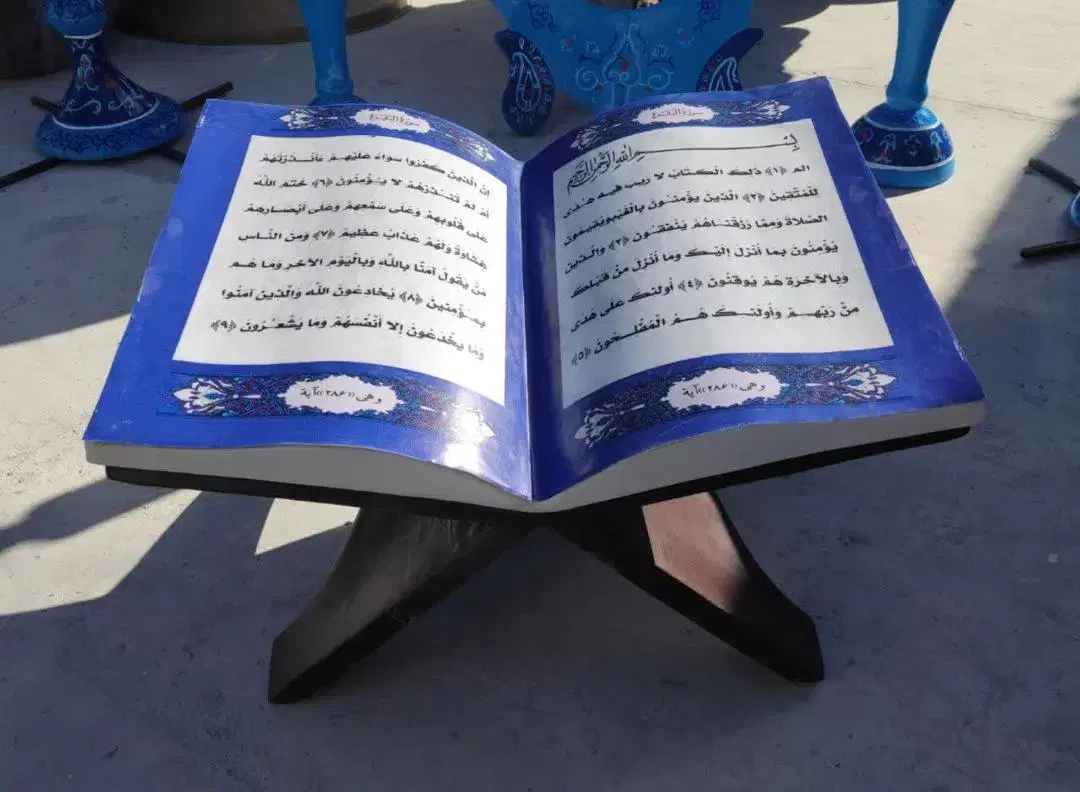 سورة البقرة
بسم الله الرحمن الرحيم
الم ﴿١﴾ ذلك الكتاب لا ريب فيه هدى
للمتقين ﴿٢﴾ الذين يؤمنون بالغيب ويقيمون
الصلاة ومما رزقناهم ينفقون ﴿٣﴾ والذين
يؤمنون بما أنزل إليك وما أنزل من قبلك
وبالآخرة هم يوقنون ﴿٤﴾ أولئك على هدى
من ربهم وأولئك هم المفلحون ﴿٥﴾
وهى «٢٨٦» آية
سورة البقرة
إن الذين كفروا سواء عليهم ءأنذرتهم
أم لم تنذرهم لا يؤمنون ﴿٦﴾ ختم الله
على قلوبهم وعلى سمعهم وعلى أبصارهم
غشاوة ولهم عذاب عظيم ﴿٧﴾ ومن الناس
من يقول آمنا بالله وباليوم الآخر وما هم
بمؤمنين ﴿٨﴾ يخادعون الله والذين آمنوا
وما يخدعون إلا أنفسهم وما يشعرون ﴿٩﴾
وهى «٢٨٦» آية